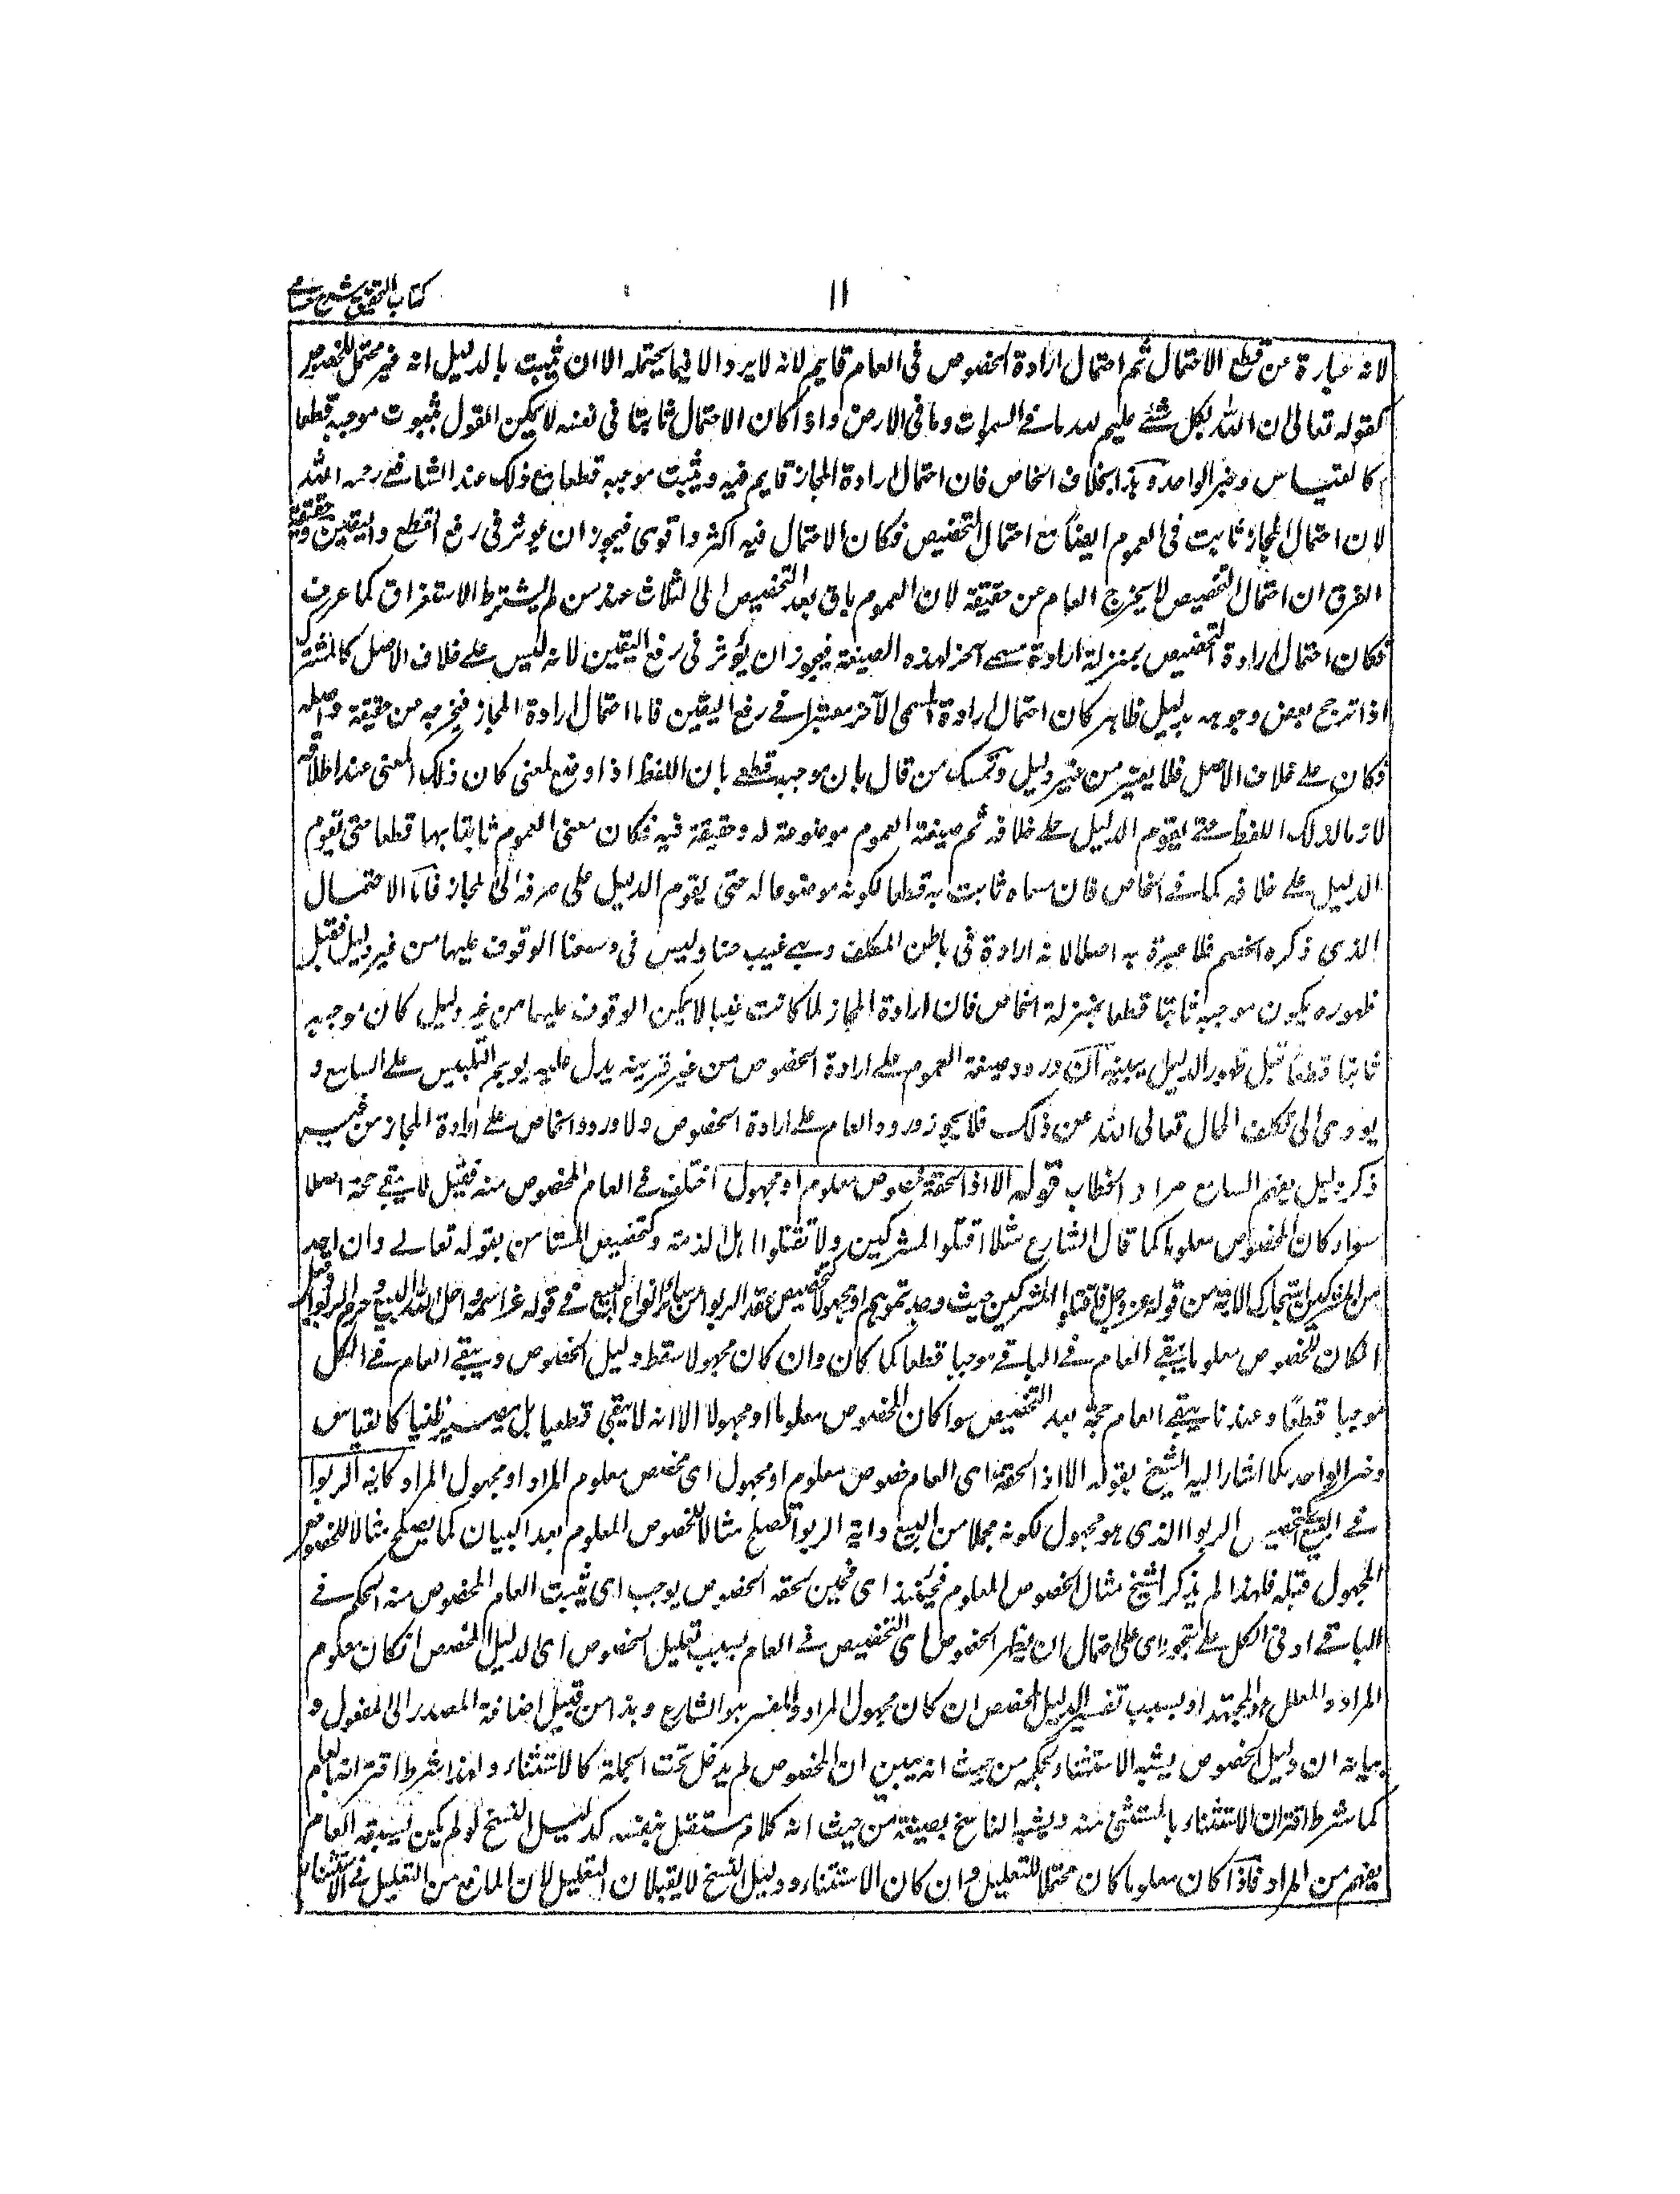 كتاب التحقيق شرح حسامي
١١
لانه عبارة عن قطع الاحتمال ثم احتمال ارادة الخصوص فى العام قايم لانه لا يرد الا فيما يحتمله الا ان يثبت بالدليل انه غير محتمل للخصوص
كقوله تعالى ان الله بكل شئ عليم لله ما فى السموات وما فى الارض واذا كان الاحتمال ثابتا فى نفسه لا يمكن القول بثبوت موجبه قطعا
كالقياس وخبر الواحد وهذا بخلاف الخاص فان احتمال ارادة المجاز قايم فيه ويثبت موجبه قطعا مع ذلك عند الشافعى رحمه الله
لان احتمال المجاز ثابت فى العموم ايضا مع احتمال التخصيص فكان الاحتمال فيه اكثر واقوى فيجوز ان يوثر فى رفع القطع واليقين وحقيقة
الفرق ان احتمال التخصيص لا يخرج العام عن حقيقة لان العموم باق بعد التخصيص الى الثلاث عند من لم يشترط الاستغراق كما عرف
فكان احتمال ارادة التخصيص بمنزلة ارادة مسمى آخر لهذه الصيغة فيجوز ان يؤثر فى رفع اليقين لانه ليس على خلاف الاصل كالمشترك
اذا ترجح بعض وجوهه بدليل ظاهر كان احتمال ارادة المسمى الآخر معتبرا فى رفع اليقين فاما احتمال ارادة المجاز فيخرجه من حقيقة واصله
فكان على خلاف الاصل فلا يعتبر من غير دليل وتمسك من قال بان موجبه قطعى بان اللفظ اذا وضع لمعنى كان ذلك المعنى عند اطلاقه
لازما لذلك اللفظ حتى يقوم الدليل على خلافه ثم صيغة العموم موضوعة له وحقيقة فيه فكان معنى العموم ثابتا بها قطعا حتى تقوم
الدليل على خلافه كما فى الخاص فان مسماه ثابت به قطعا لكونه موضوعا له حتى يقوم الدليل على صرفه الى المجاز فاما الاحتمال
الذى ذكره الخصم فلا عبرة به اصلا لانه ارادة فى باطن المتكلم وهى غيب عنا وليس فى وسعنا الوقوف عليها من غير دليل فقبل
ظهوره يكون موجبه ثابتا قطعا بمنزلة الخاص فان ارادة المجاز لما كانت غيبا لا يمكن الوقوف عليها من غير دليل كان موجبه
ثابتا قطعا قبل ظهور الدليل يبينه ان ورود صيغة العموم على ارادة الخصوص من غير قرينه يدل عليه يوهم التلبيس على السامع و
يودى الى تكليف المحال تعالى الله عن ذلك فلا يجوز ورود العام على ارادة الخصوص ولا ورود الخاص على ارادة المجاز من غير
ذكر دليل يفهم السامع مراد الخطاب قوله الا اذا لحقه خصوص معلوم او مجهول اختلف فى العام المخصوص منه فقيل لا يبقى حجة اصلا
سواء كان المخصوص معلوما كما قال الشارع مثلا اقتلوا المشركين ولا تقتلوا اهل الذمة وكتخصيص المستامن بقوله تعالى وان احد
من المشركين استجارك الاية من قوله عز وجل فاقتلوا المشركين حيث وجدتموهم او مجهولا كتخصيص عقد الربوا من سائر انواع البيع فى قوله عز اسمه واحل الله البيع وحرم الربوا وقيل
ان كان المخصوص معلوما يبقى العام فى الباقى موجبا قطعا كما كان وان كان مجهولا سقط دليل الخصوص ويبقى العام فى الكل
موجبا قطعا وعندنا يبقى العام حجة بعد التخصيص سواء كان المخصوص معلوما او مجهولا الا انه لا يبقى قطعيا بل يصير ظنيا كالقياس
وخبر الواحد كما اشار اليه الشيخ بقوله الا اذا لحقه اى العام خصوص معلوم او مجهول اى مخصص معلوم المراد او مجهول المراد كاية الربوا
فى البيع الربوا الذى هو مجهول لكونه مجملا من البيع واية الربوا تصلح مثالا للخصوص المعلوم بعد البيان كما يصلح مثالا للخصوص
المجهول قبله فلهذا لم يذكر الشيخ مثال الخصوص المعلوم فحينئذ اى فحين لحقه الخصوص يوجب اى يثبت العام المخصوص منه الحكم فى
الباقى او فى الكل على تجوز اى على احتمال ان يظهر الخصوص اى التخصيص فى العام بسبب تعليل الخصوص اى الدليل المخصص ان كان معلوم
المراد والمعلل هو المجتهد او بسبب تفسير الدليل المخصص ان كان مجهول المراد والمفسر هو الشارع وهذا من قبيل اضافة المصدر الى المفعول و
بيانه ان دليل الخصوص يشبه الاستثناء بحكمه من حيث انه يبين ان المخصوص لم يدخل تحت الجملة كالاستثناء ولهذا شرط اقترانه بالعام
كما شرط اقتران الاستثناء بالمستثنى منه ويشبه الناسخ بصيغة من حيث انه كلام مستقل بنفسه كدليل النسخ لو لم يكن يسبقه العام
يفهم من المراد فاذا كان معلوما كان محتملا للتعليل وان كان الاستثناء ودليل النسخ لا يقبلان التعليل لان المانع من التعليل فى الاستثناء